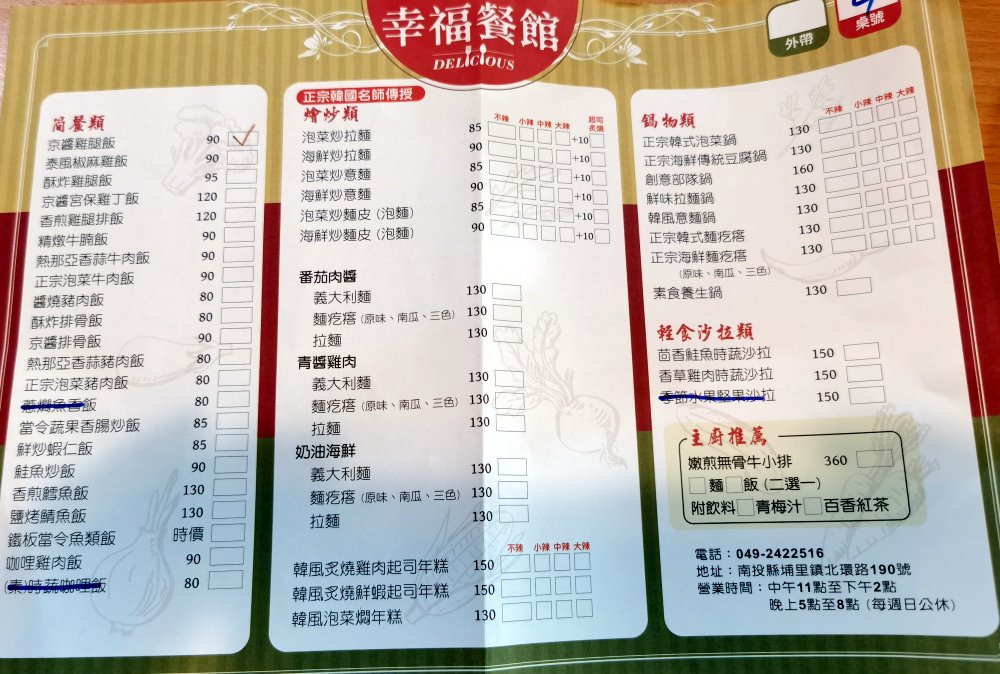 幸福餐館
DELICIOUS
外帶
桌號
簡餐類
京醬雞腿飯 90
泰風椒麻雞飯 90
酥炸雞腿飯 95
京醬宮保雞丁飯 120
香煎雞腿排飯 120
精燉牛腩飯 90
熱那亞香蒜牛肉飯 90
正宗泡菜牛肉飯 90
醬燒豬肉飯 80
酥炸排骨飯 80
京醬排骨飯 90
熱那亞香蒜豬肉飯 80
正宗泡菜豬肉飯 80
蔥燜魚香飯 80
當令蔬果香腸炒飯 85
鮮炒蝦仁飯 85
鮭魚炒飯 90
香煎鱈魚飯 130
鹽烤鯖魚飯 130
鐵板當令魚類飯 時價
咖哩雞肉飯 90
(素)時蔬咖哩飯 80
正宗韓國名師傳授
燴炒類
不辣 小辣 中辣 大辣 起司炙燒
泡菜炒拉麵 85 +10
海鮮炒拉麵 90 +10
泡菜炒意麵 85 +10
海鮮炒意麵 90 +10
泡菜炒麵皮（泡麵） 85 +10
海鮮炒麵皮（泡麵） 90 +10
番茄肉醬
義大利麵 130
麵疙瘩（原味、南瓜、三色） 130
拉麵 130
青醬雞肉
義大利麵 130
麵疙瘩（原味、南瓜、三色） 130
拉麵 130
奶油海鮮
義大利麵 130
麵疙瘩（原味、南瓜、三色） 130
拉麵 130
不辣 小辣 中辣 大辣
韓風炙燒雞肉起司年糕 150
韓風炙燒鮮蝦起司年糕 150
韓風泡菜燜年糕 130
鍋物類
不辣 小辣 中辣 大辣
正宗韓式泡菜鍋 130
正宗海鮮傳統豆腐鍋 130
創意部隊鍋 160
鮮味拉麵鍋 130
韓風意麵鍋 130
正宗韓式麵疙瘩 130
正宗海鮮麵疙瘩 130
（原味、南瓜、三色）
素食養生鍋 130
輕食沙拉類
茴香鮭魚時蔬沙拉 150
香草雞肉時蔬沙拉 150
季節水果堅果沙拉 150
主廚推薦
嫩煎無骨牛小排 360
麵 飯（二選一）
附飲料 青梅汁 百香紅茶
電話：049-2422516
地址：南投縣埔里鎮北環路190號
營業時間：中午11點至下午2點
晚上5點至8點（每週日公休）